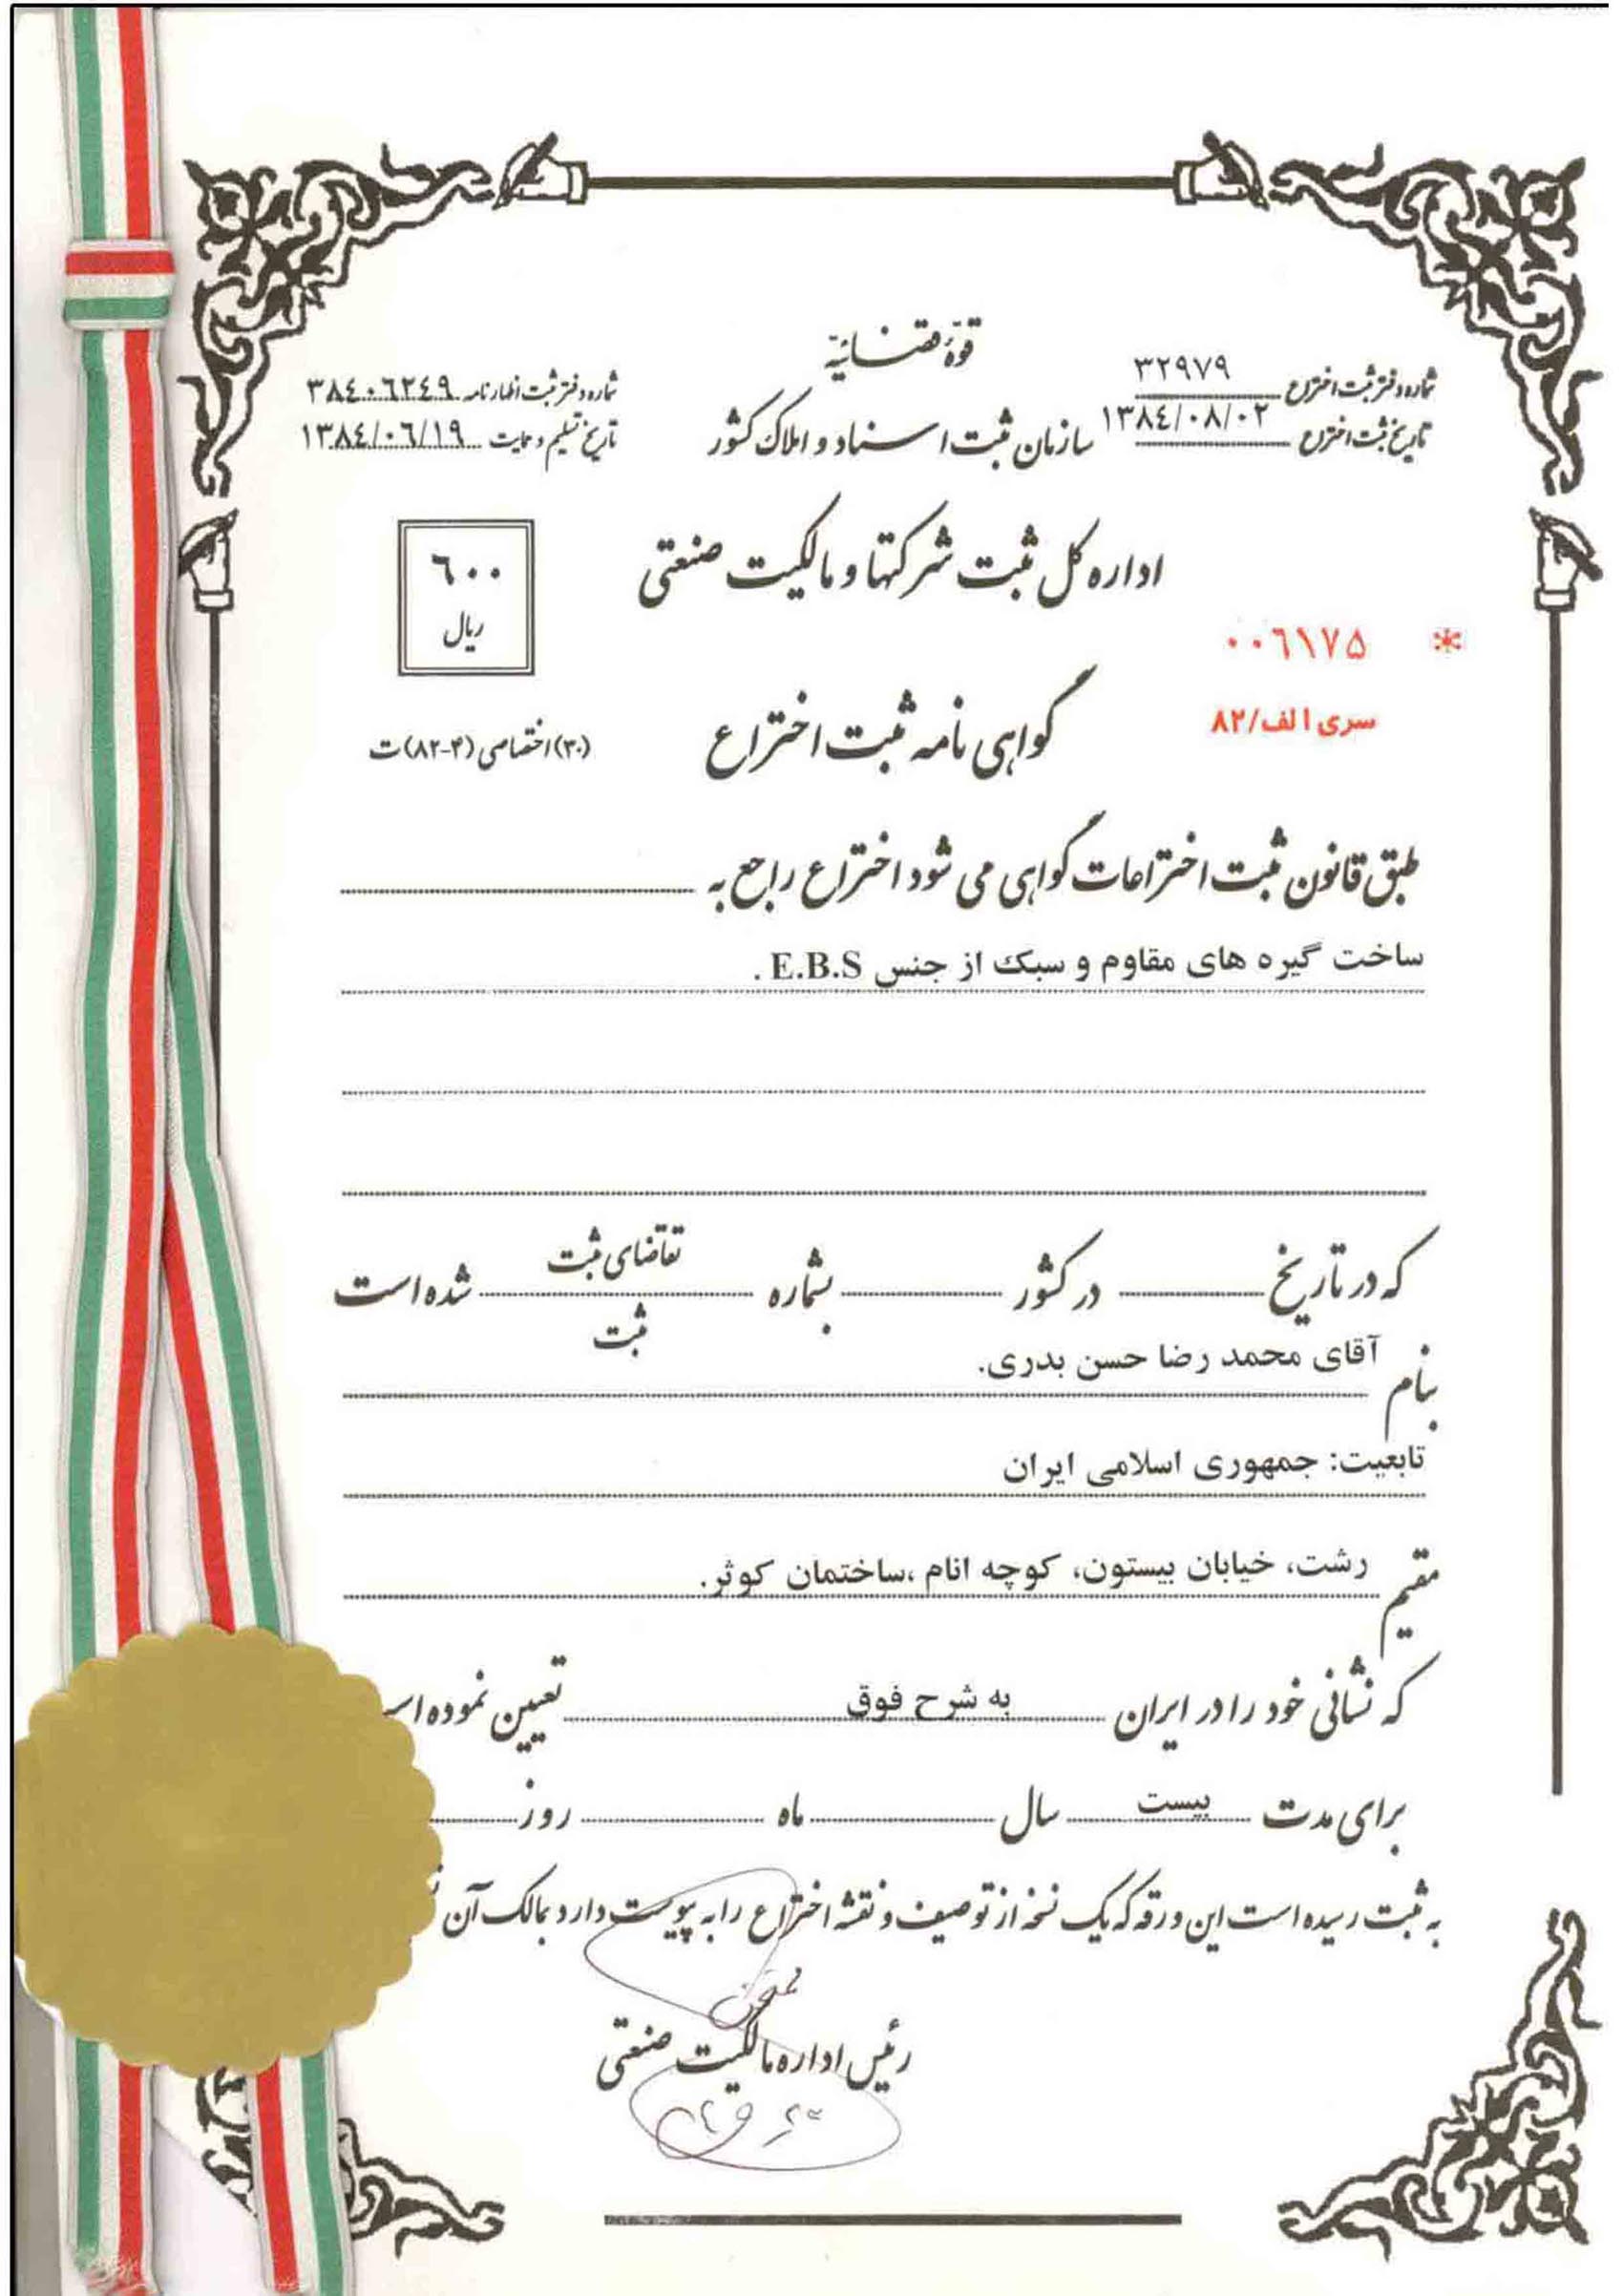 قوّۀ قضـائیّه
شماره دفتر ثبت اختراع ۳۲۹۷۹
شماره دفتر ثبت اظهارنامه ۳۸٤۰٦۲٤۹
سازمان ثبت اسناد و املاک کشور
تاریخ ثبت اختراع ۱۳۸٤/۰۸/۰۲
تاریخ تسلیم و حمایت ۱۳۸٤/۰٦/۱۹
اداره کل ثبت شرکتها و مالکیت صنعتی
٦۰۰
ریال
* ۰۰٦۱۷۵
سری الف/۸۲
گواهی نامه ثبت اختراع
(۳۰) اختصاصی (۴-۸۲) ت
طبق قانون ثبت اختراعات گواهی می شود اختراع راجع به
ساخت گیره های مقاوم و سبک از جنس E.B.S .
که در تاریخ در کشور بشماره تقاضای ثبت شده است
ثبت
بنام آقای محمد رضا حسن بدری.
تابعیت: جمهوری اسلامی ایران
مقیم رشت، خیابان بیستون، کوچه انام ،ساختمان کوثر.
که نشانی خود را در ایران به شرح فوق تعیین نموده
برای مدت بیست سال ماه روز
به ثبت رسیده است این ورقه که یک نسخه از توصیف و نقشه اختراع را به پیوست دارد بمالک آن
رئیس اداره مالکیت صنعتی